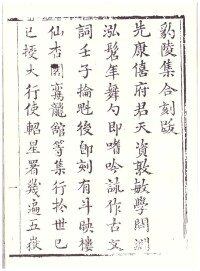 豹陵集合刻跋
先康僖府君天資敦敏學閎淵
泓髫年舞勺即嗜吟詠作古文
詞壬子掄魁後即刻有斗映樓
仙杏園鸞龍館等集行於世已
已授大行使軺星署幾遍五嶽